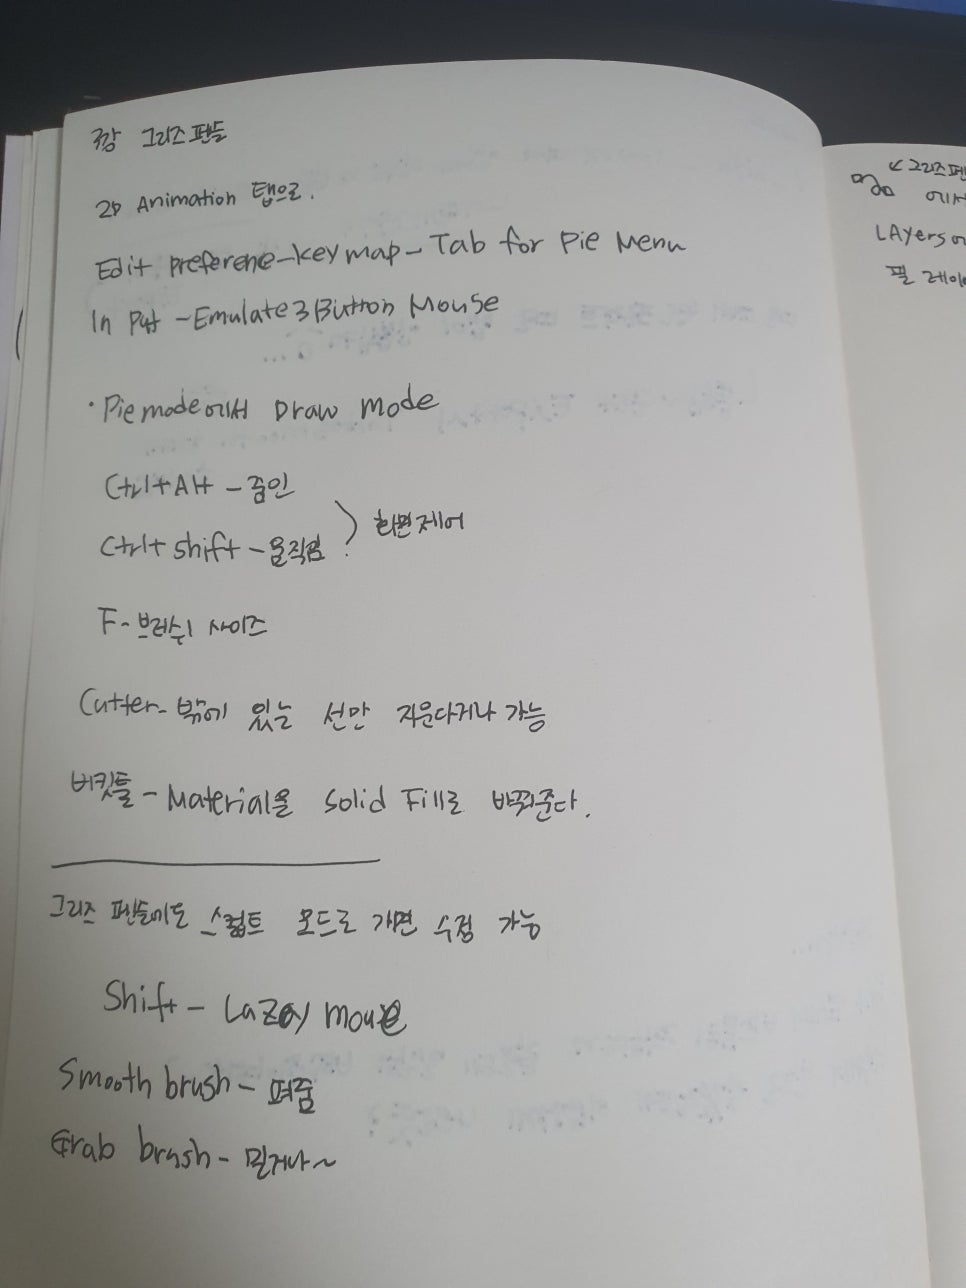 3강 그리즈 펜슬
2D Animation 탭으로.
Edit preference-keymap-Tab for Pie Menu
In Put -Emulate 3 Button Mouse
· Pie mode에서 Draw mode
Ctrl+Alt - 줌인
Ctrl+shift - 움직임
화면제어
F - 브러쉬 사이즈
Cutter- 밖에 있는 선만 지운다거나 가능
버킷툴 - Material을 Solid Fill로 바꿔준다.
그리즈 펜슬에도 스컬프트 모드로 가면 수정 가능
Shift - Lazey mouse
Smooth brush - 펴줌
Grab brush - 밀거나~
↙그리즈펜
에서
LAyers
필 레이어